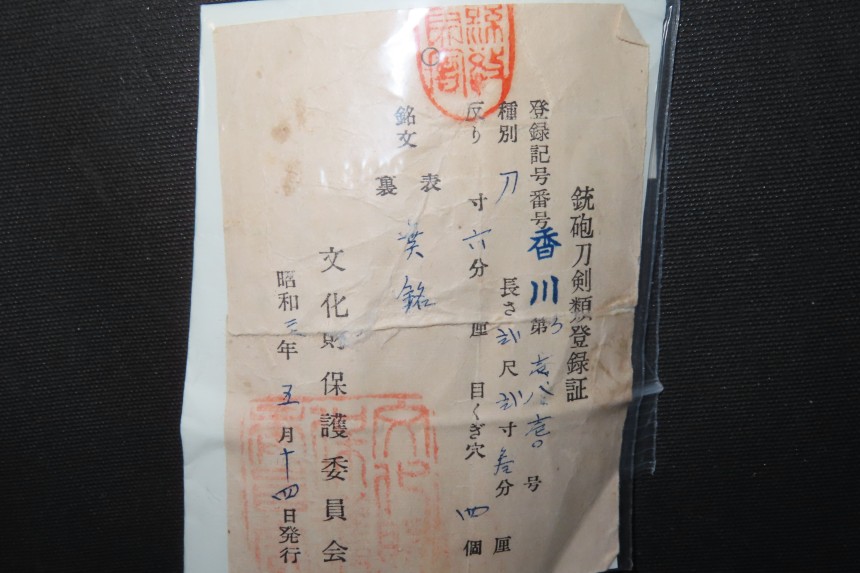 銃砲刀剣類登録証
登録記号番号 香川 第 壱八壱〇 号
種別 刀 長さ 弐 尺 弐 寸 参 分 厘
反り 寸 六 分 厘 目くぎ穴 四 個
銘文 表
裏
銘
文化財保護委員会
昭和三年五月十四日発行